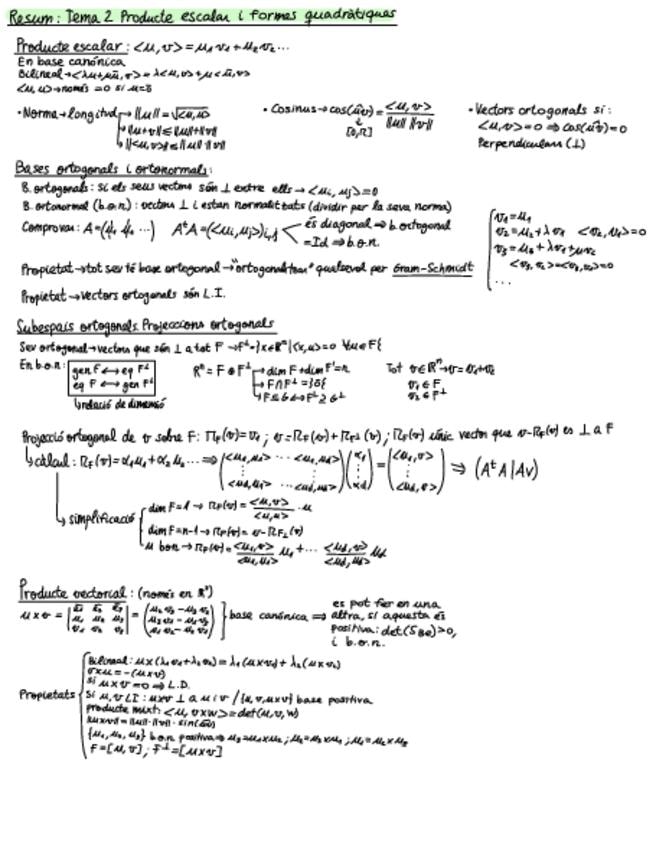 Resum: Tema 2 Producte escalar i formes quadràtiques
Producte escalar: <u,v> = u₁v₁ + u₂v₂ ...
En base canónica
Bilineal → <λu+μũ,v> = λ<u,v> + μ<ũ,v>
<u,u> → només = 0 si u=0
· Norma → longitud → ||u|| = √<u,u>
→ ||u+v|| ≤ ||u||+||v||
→ |<u,v>| ≤ ||u||·||v||
· Cosinus → cos(u,v) = <u,v> / ||u|| ||v||
[0,π]
· Vectors ortogonals si:
<u,v> = 0 ⇒ cos(uv) = 0
Perpendiculars (⊥)
Bases ortogonals i ortonormals:
B. ortogonals: si els seus vectors són ⊥ entre ells → <ui,uj> = 0
B. ortonormal (b.o.n): vectors ⊥ i estan normalitzats (dividir per la seva norma)
Comprovar: A = (u₁ u₂ ...) AᵗA = (<ui,uj>)i,j
és diagonal ⇒ b. ortogonal
= Id ⇒ b.o.n.
v₁ = u₁
v₂ = u₂ + λv₁ <v₂,v₁> = 0
v₃ = u₃ + λv₁ + μv₂
<v₃,v₁> = <v₃,v₂> = 0
...
Propietat → tot sev té base ortogonal → qualsevol per Gram-Schmidt
Propietat → Vectors ortogonals són L.I.
Subespais ortogonals. Projeccions ortogonals
Sev ortogonal → vectors que són ⊥ a tot F → F⊥ = {x∈Rⁿ | <x,u> = 0 ∀u∈F}
En b.o.n:
gen F ↔ eq F⊥
eq F ↔ gen F⊥
↳ relació de dimensió
Rⁿ = F ⊕ F⊥ → dim F + dim F⊥ = n
→ F ∩ F⊥ = {0}
→ F ⊆ G ↔ F⊥ ⊇ G⊥
Tot v∈Rⁿ → v = v₁+v₂
v₁ ∈ F
v₂ ∈ F⊥
Projecció ortogonal de v sobre F: πF(v) = v₁ ; v = πF(v) + πF⊥(v) ; πF(v) únic vector que v-πF(v) és ⊥ a F
↳ càlcul: πF(v) = α₁u₁ + α₂u₂ ... ⇒ (<u₁,u₁> ... <u₁,ud> ⋮ <ud,u₁> ... <ud,ud>) (α₁ ⋮ αd) = (<u₁,v> ⋮ <ud,v>) ⇒ (AᵗA | Av)
↳ simplificació
dim F = 1 → πF(v) = <u,v>/<u,u> · u
dim F = n-1 → πF(v) = v - πF⊥(v)
u bon → πF(v) = <u₁,v>/<u₁,u₁> u₁ + ... <ud,v>/<ud,ud> ud
Producte vectorial: (només en R³)
u×v = |e₁ e₂ e₃ / u₁ u₂ u₃ / v₁ v₂ v₃| = (u₂v₃-u₃v₂ / u₃v₁-u₁v₃ / u₁v₂-u₂v₁) } base canónica ⇒
es pot fer en una
altra, si aquesta és
positiva: det(SBe) > 0,
i b.o.n.
Propietats
Bilineal: u×(λ₁v₁+λ₂v₂) = λ₁(u×v₁) + λ₂(u×v₂)
v×u = -(u×v)
Si u×v = 0 ⇒ L.D.
Si u,v LI: u×v ⊥ a u i v / {u,v,u×v} base positiva
producte mixt: <u,v×w> = det(u,v,w)
||u×v|| = ||u||·||v||·sin(uv)
{u₁,u₂,u₃} b.o.n positiva ⇒ u₃ = u₁×u₂ ; u₂ = u₃×u₁ ; u₁ = u₂×u₃
F = [u,v] ; F⊥ = [u×v]